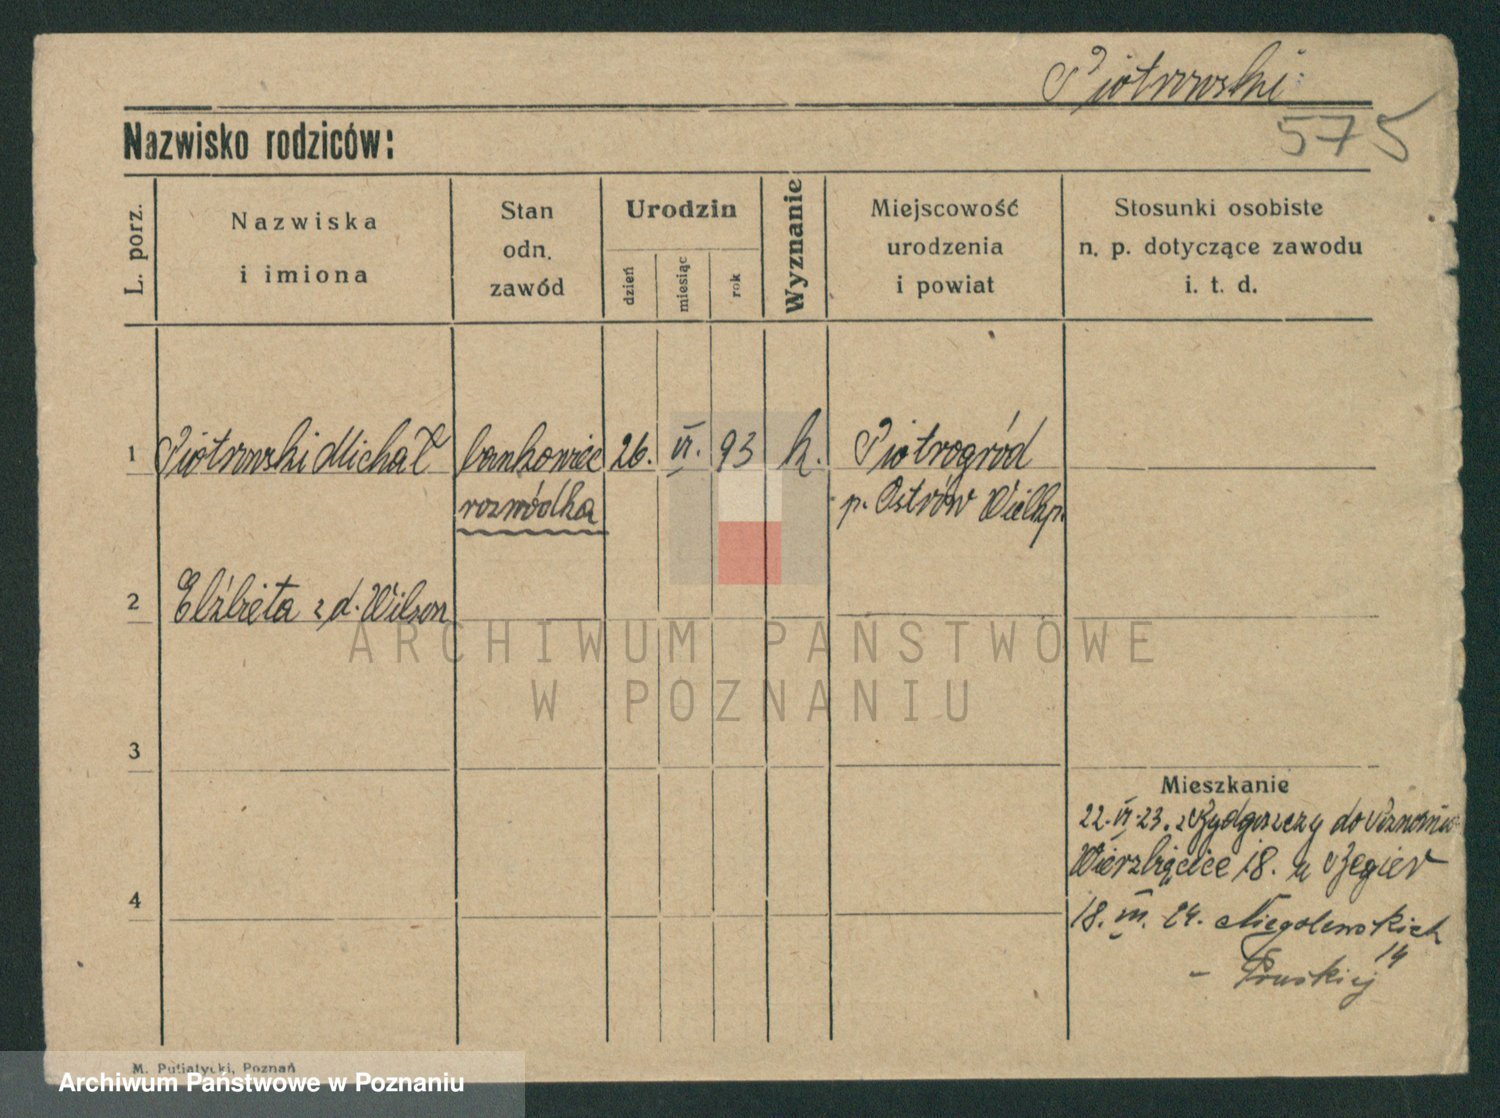 Piotrowski
575
Nazwisko rodziców:
L. porz.
Nazwiska
i imiona
Stan
odn.
zawód
Urodzin
dzień
miesiąc
rok
Wyznanie
Miejscowość
urodzenia
i powiat
Stosunki osobiste
n. p. dotyczące zawodu
i. t. d.
1 Piotrowski Michał bankowiec 26. VI. 93 k. Piotrogród
rozwódka p. Ostrów Wielkp.
2 Elżbieta z d. Wilson
3
Mieszkanie
22. VI. 23. z Bydgoszczy do Poznania
Wierzbięcice 18. u
4
18. III. 24. Niegolewskich
14
- Pruskiej
ARCHIWUM PAŃSTWOWE
W POZNANIU
M. Putiatycki, Poznań
Archiwum Państwowe w Poznaniu